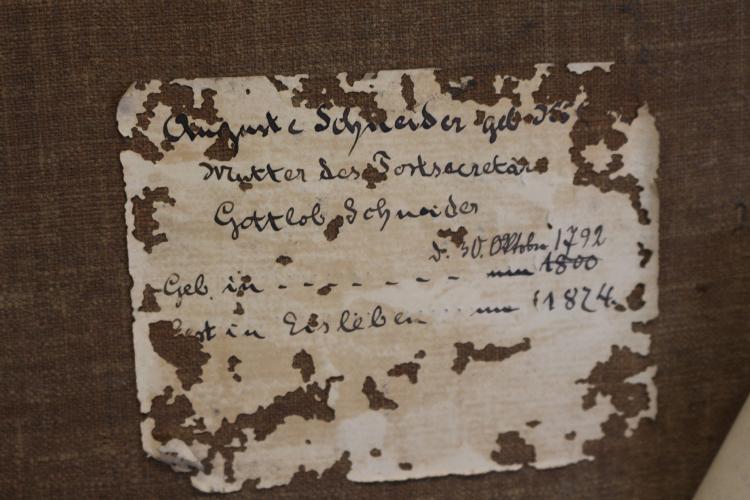 Auguste Schneider geb
Mutter des Forstsecretär
Gottlob Schneider
d. 30. Oktober 1792
Geb. in - - - - - - - um 1800
Gest in Eisleben um 1874.